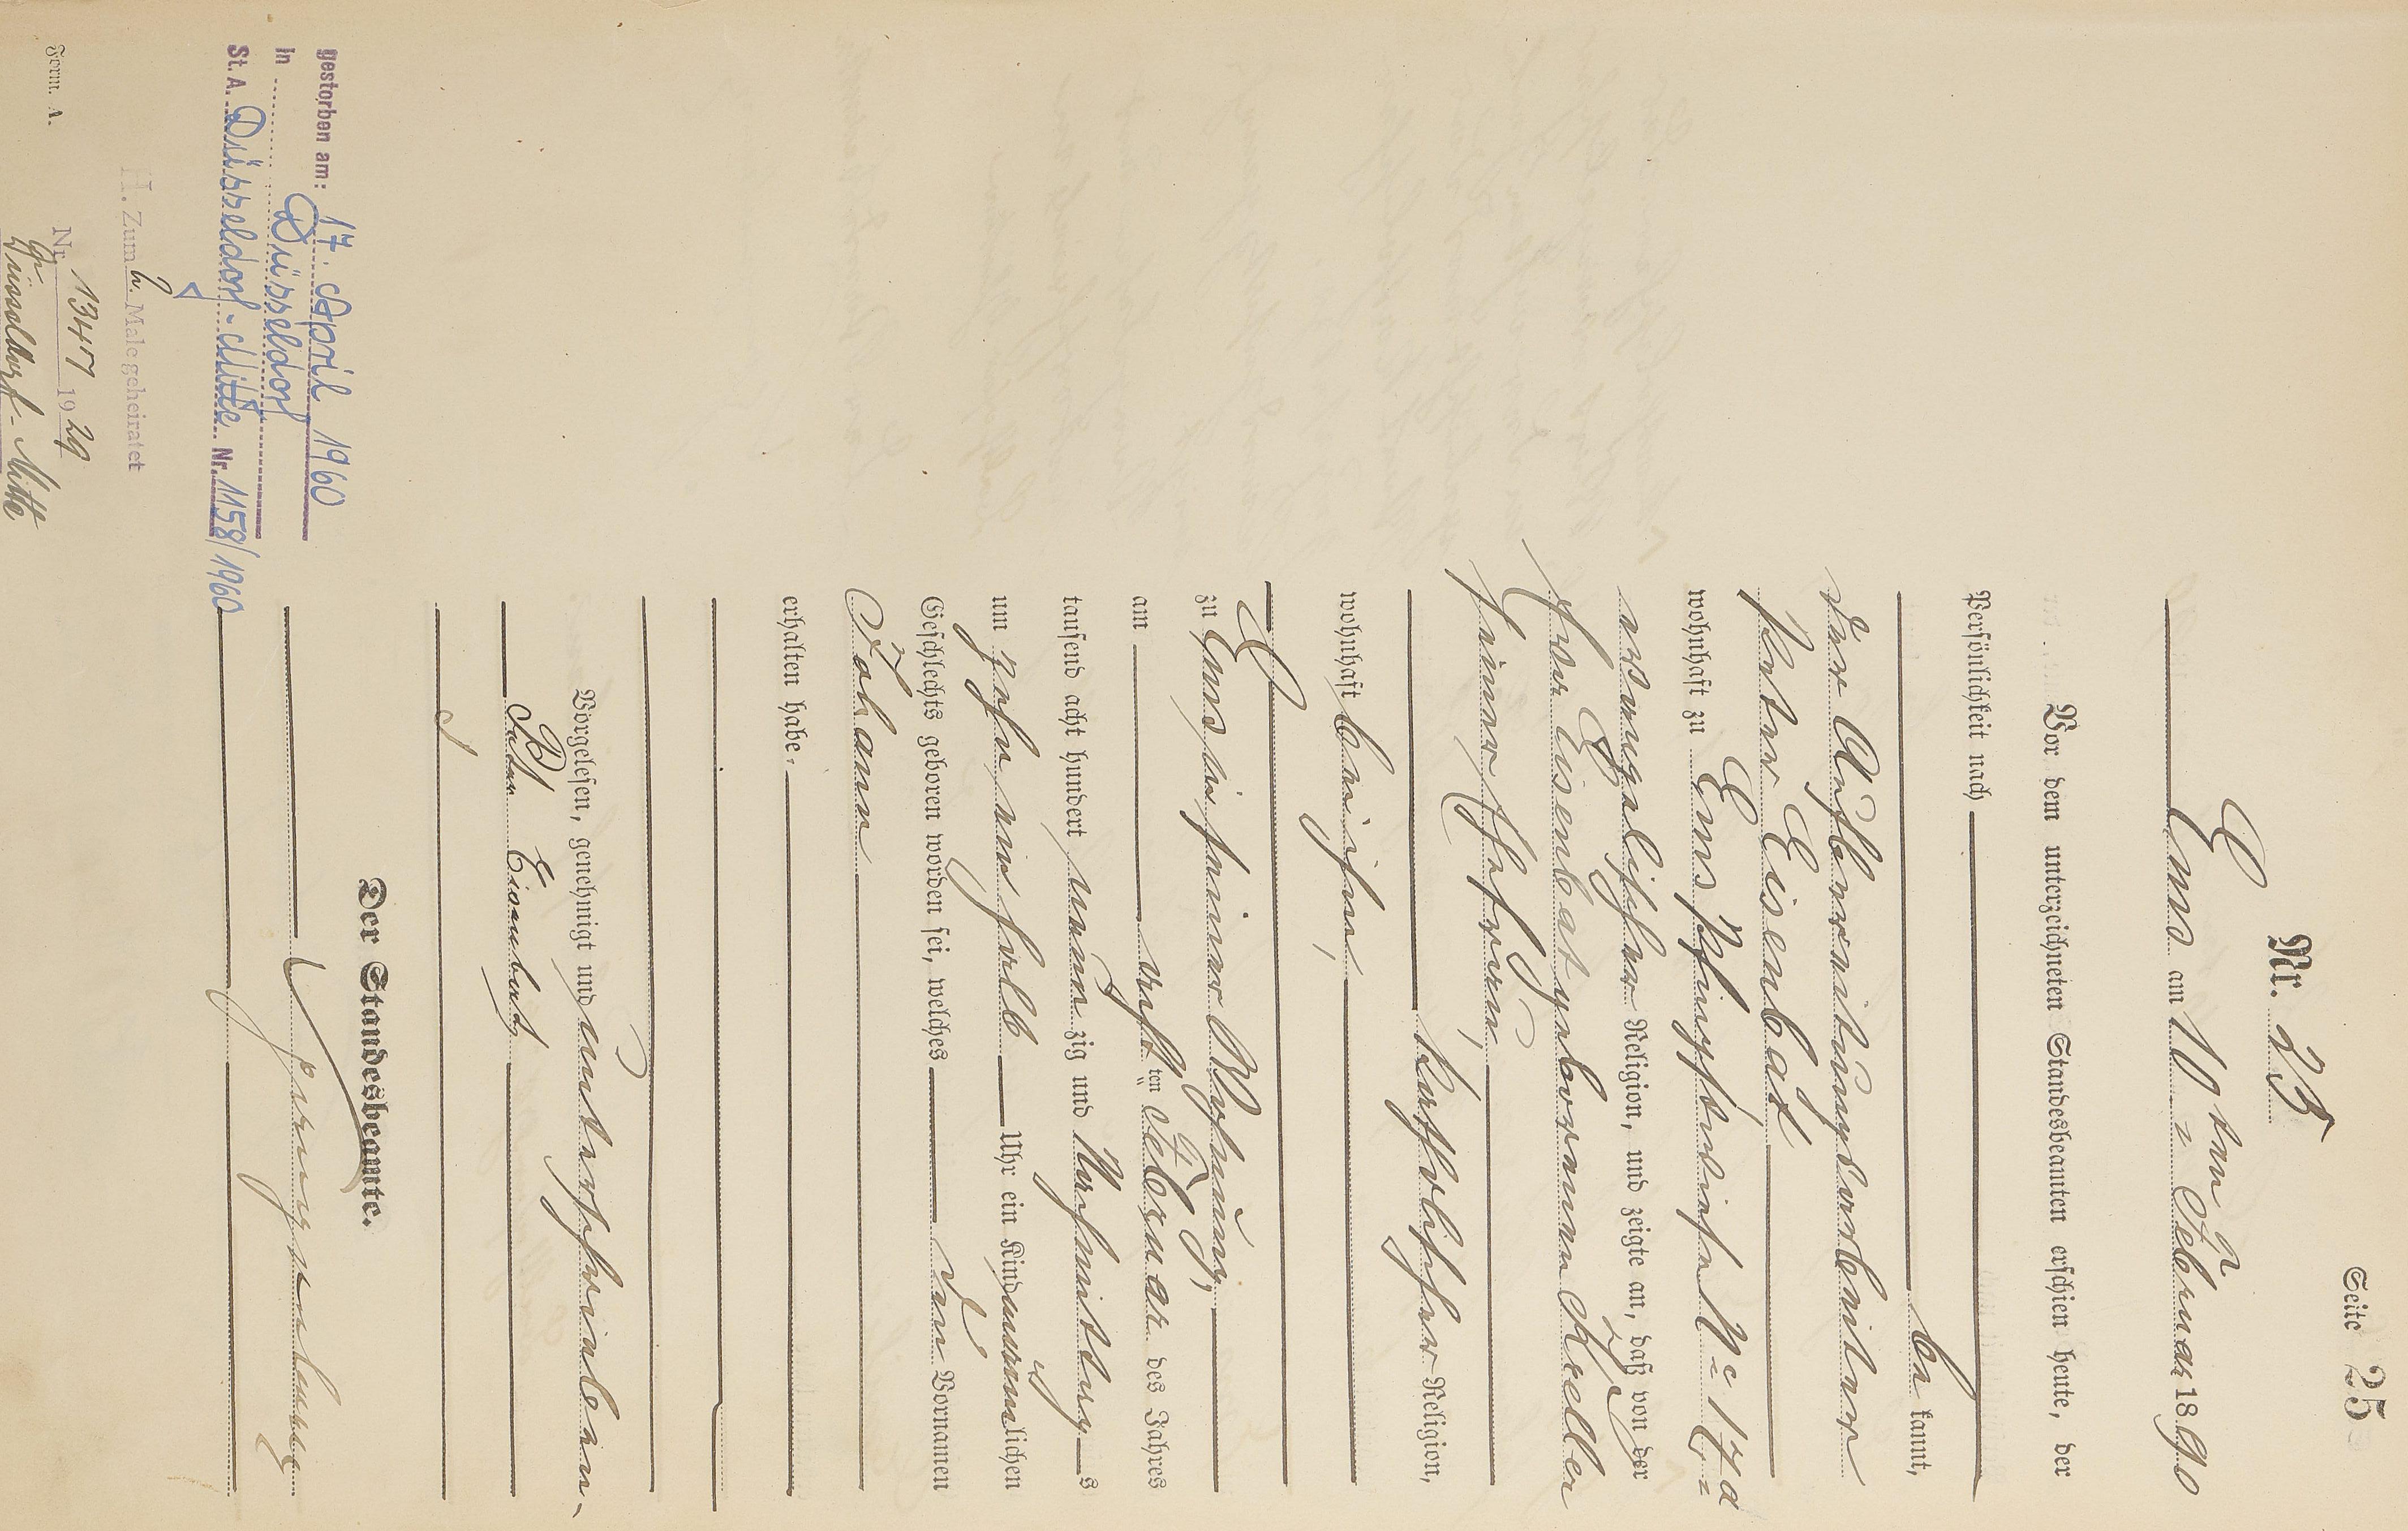 Seite 25
Nr. 25
Ems am 10ten Februar 1890
Vor dem unterzeichneten Standesbeamten erschien heute, der
Persönlichkeit nach
be kannt,
der
Peter Eisenbart
wohnhaft zu Ems Pfingstwiese No 17d
evangelischer Religion, und zeigte an, daß von der
Eisenbart geborenen Keller
seiner Ehefrau,
katholischer Religion,
wohnhaft bei ihm,
zu Ems in seiner Wohnung,
am acht ten Februar des Jahres
tausend acht hundert neun zig und Nachmittag s
um zehn ein halb Uhr ein Kind männlichen
Geschlechts geboren worden sei, welches den Vornamen
Johann
erhalten habe.
Vorgelesen, genehmigt und unterschrieben
Peter Eisenbart
Der Standesbeamte.
gestorben am: 17. April 1960
in Düsseldorf
St. A. Düsseldorf-Mitte Nr. 1158/1960
H. Zum 2. Male geheiratet
Nr. 1347 1929
Düsseldorf-Mitte
Form. A.